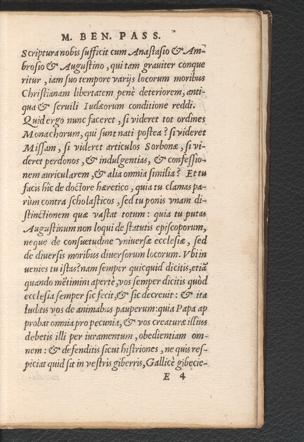 M. BEN. PASS.
Scriptura nobis sufficit cum Anastasio & Am-
brosio & Augustino, qui tam grauiter conque
ritur, iam suo tempore varijs locorum moribus
Christianam libertatem penè deteriorem, anti-
qua & seruili Iudæorum conditione reddi.
Quid ergo nunc faceret, si videret tot ordines
Monachorum, qui sunt nati postea? si videret
Missam, si videret articulos Sorbonæ, si vi-
deret perdonos, & indulgentias, & confessio-
nem auricularem, & alia omnia similia? Et tu
facis hîc de doctore hæretico, quia tu clamas pa-
rùm contra scholasticos, sed tu ponis vnam di-
stinctionem quæ vastat totum: quia tu putas
Augustinum non loqui de statutis episcoporum,
neque de consuetudine vniuersæ ecclesiæ, sed
de diuersis moribus diuersorum locorum. Vbi in
uenies tu istas? nam semper quicquid dicitis, etiã
quando mẽtimini apertè, vos semper dicitis quòd
ecclesia semper sic fecit, & sic decreuit: & ita
luditis vos de animabus pauperum: quia Papa ap
probat omnia pro pecunia, & vos creaturæ illius
debetis illi per iuramentum, obedientiam om-
nem: & defenditis sicut histriones, ne quis res-
piciat quid sit in vestris giberris, Gallicè gibecie-
E 4